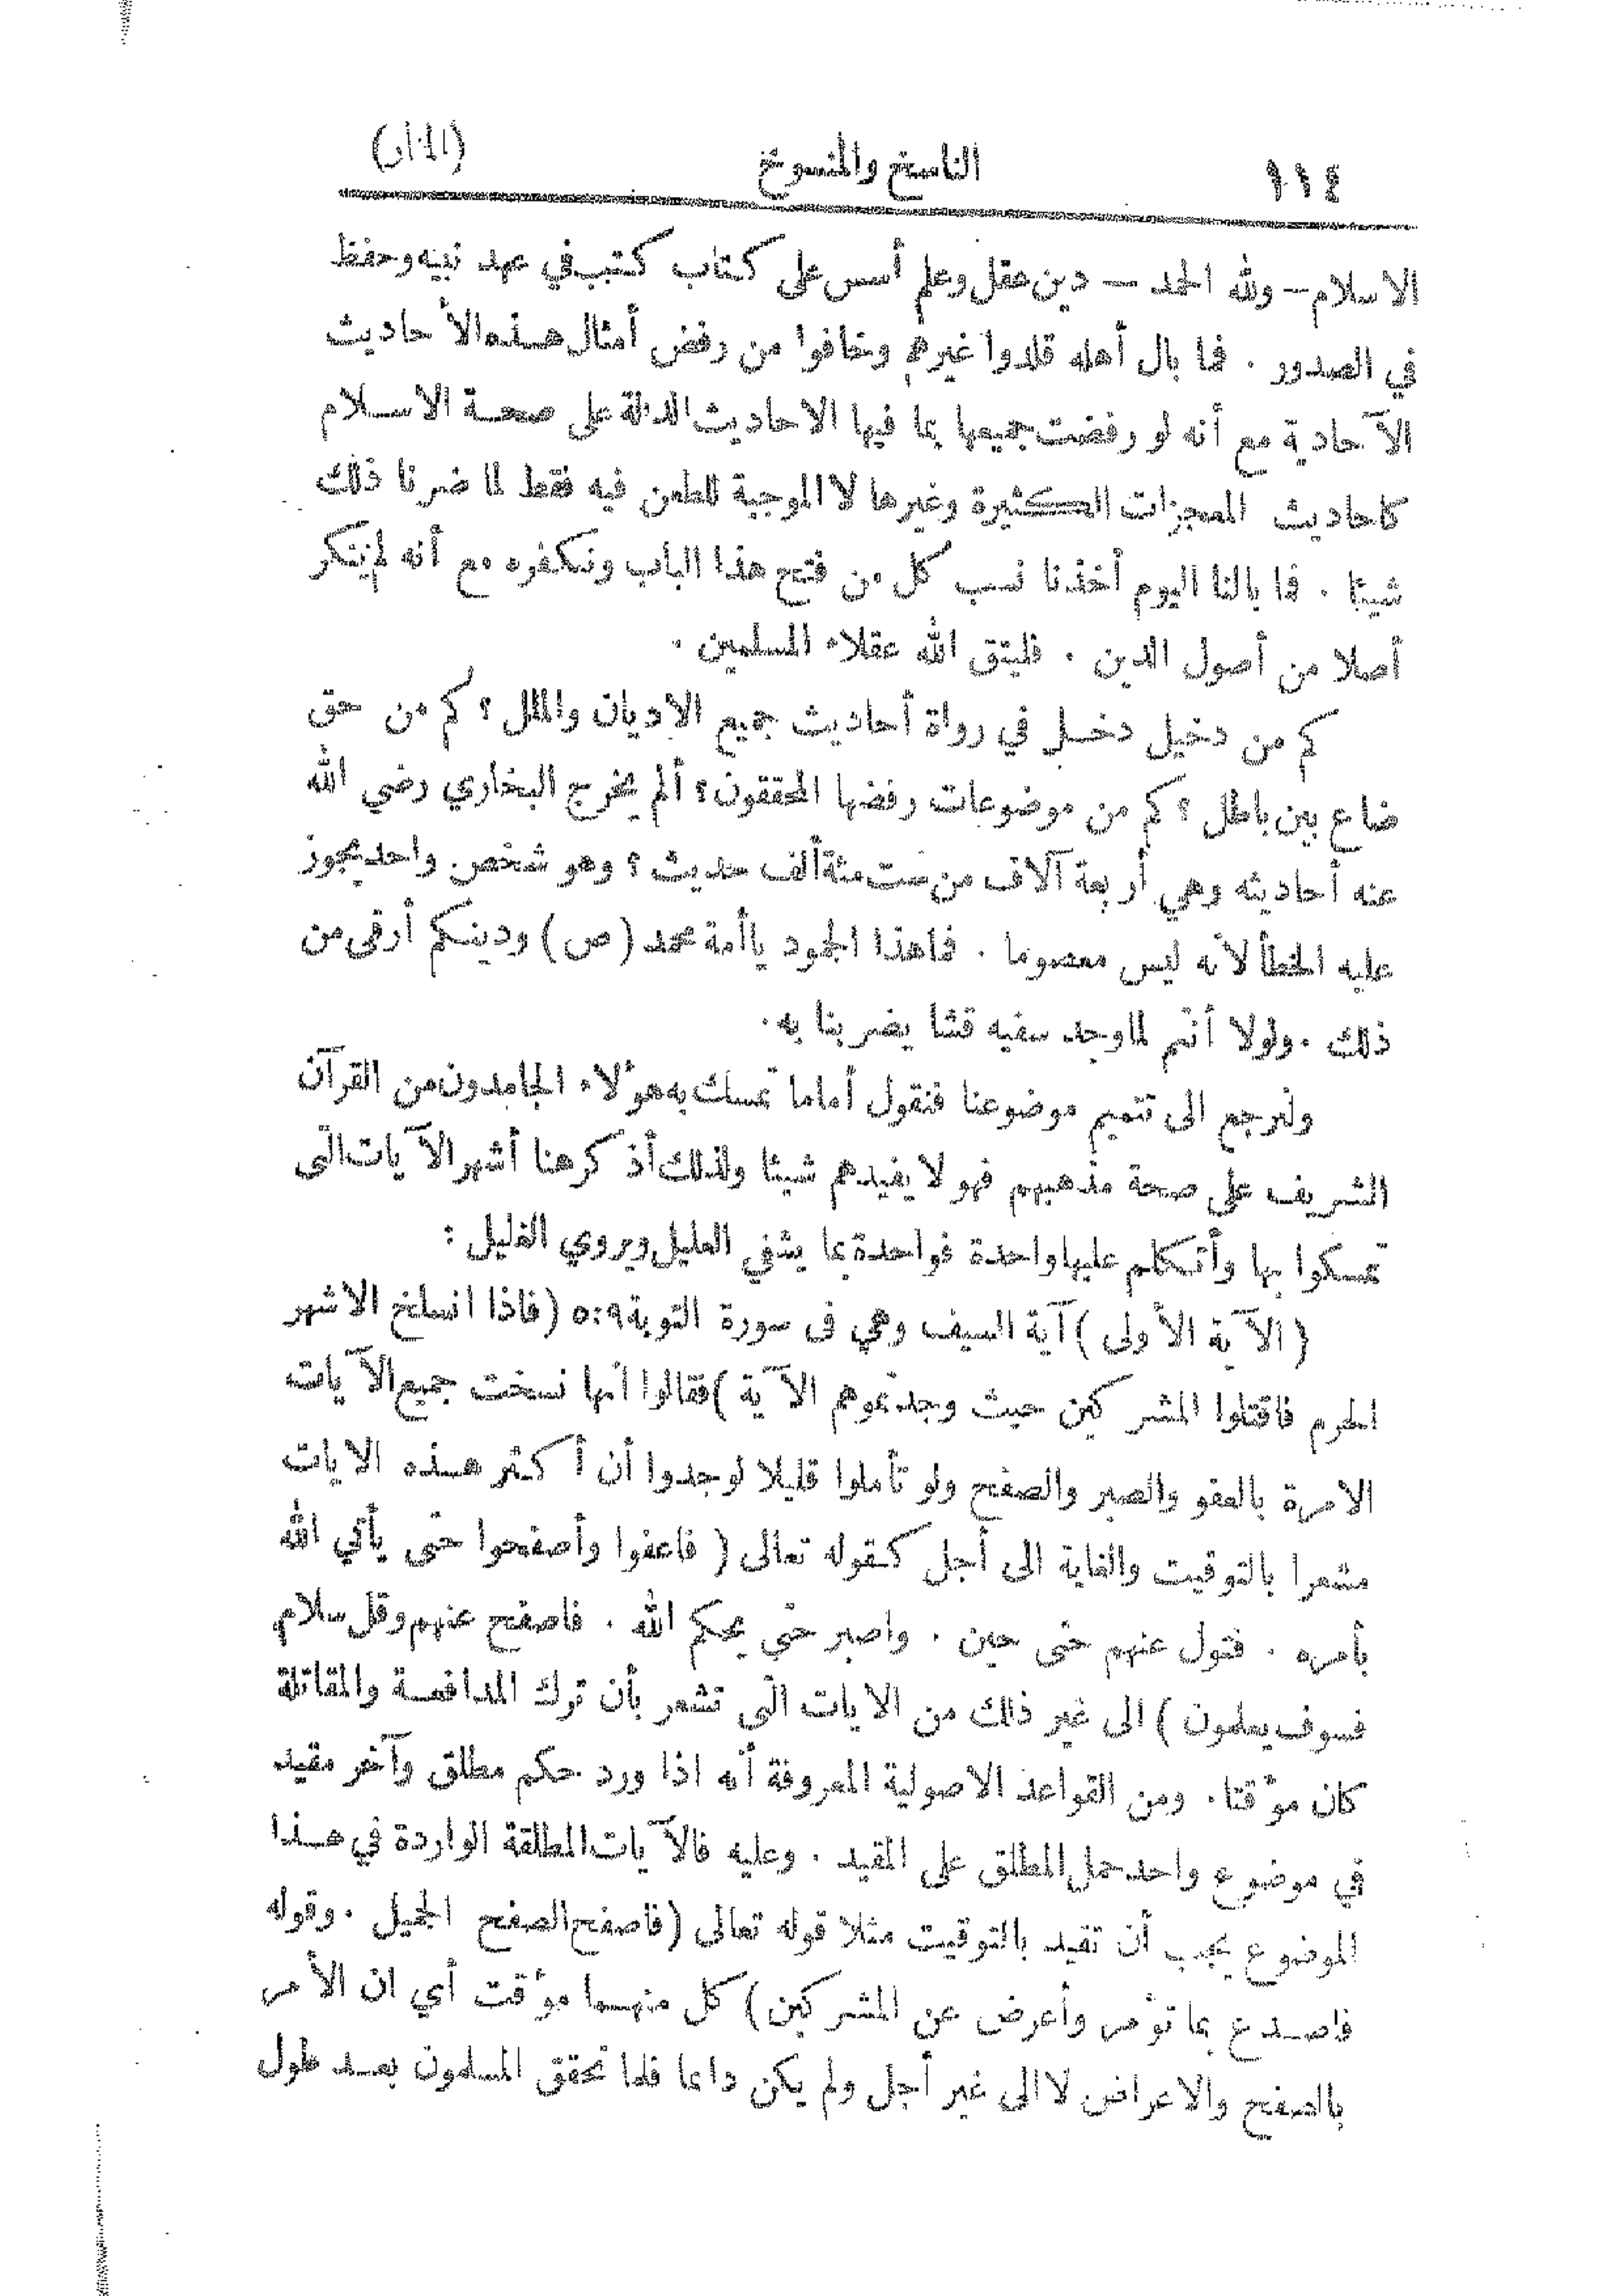 ٦١٤ الناسخ والمنسوخ (المنار)
الاسلام — ولله الحمد — دين عقل وعلم أسس على كتاب كتب في عهد نبيه وحفظ
في الصدور . فما بال أهله قلدوا غيرهم وخافوا من رفض أمثال هذه الأحاديث
الآحادية مع أنه لو رفضت جميعها بما فيها الاحاديث الدالة على صحة الاسلام
كاحاديث المعجزات الكثيرة وغيرها لا الموجبة للطعن فيه فقط لما ضرنا ذلك
شيئا . فما بالنا اليوم أخذنا نسب كل من فتح هذا الباب ونكفره مع أنه لم ينكر
أصلا من أصول الدين . فليتق الله عقلاء المسلمين .
كم من دخيل دخل في رواة أحاديث جميع الاديان والملل ؟ كم من حق
ضاع بين باطل ؟ كم من موضوعات رفضها المحققون ؟ ألم يخرج البخاري رضي الله
عنه أحاديثه وهي أربعة آلاف من ست مئة ألف حديث ؟ وهو شخص واحد يجوز
عليه الخطأ لأنه ليس معصوما . فما هذا الجمود ياأمة محمد (ص) ودينكم أرقى من
ذلك . ولولا أنتم لما وجد سفيه قشا يضربنا به .
ولنرجع الى تتميم موضوعنا فنقول أما ما تمسك به هؤلاء الجامدون من القرآن
الشريف على صحة مذهبهم فهو لا يفيدهم شيئا ولذلك أذكر هنا أشهر الآيات التي
تمسكوا بها وأتكلم عليها واحدة فواحدة بما يشفي العليل ويروي الغليل :
( الآية الأولى ) آية السيف وهي فى سورة التوبة ٥:٩ (فاذا انسلخ الاشهر
الحرم فاقتلوا المشركين حيث وجدتموهم الآية ) فقالوا أنها نسخت جميع الآيات
الامرة بالعفو والصبر والصفح ولو تأملوا قليلا لوجدوا أن أكثر هذه الايات
مشعرا بالتوقيت والغاية الى أجل كقوله تعالى ( فاعفوا وأصفحوا حتى يأتي الله
بأمره . فتول عنهم حتى حين . واصبر حتى يحكم الله . فاصفح عنهم وقل سلام
فسوف يعلمون ) الى غير ذلك من الايات التي تشعر بأن ترك المدافعة والمقاتلة
كان مؤقتا . ومن القواعد الاصولية المعروفة أنه اذا ورد حكم مطلق وآخر مقيد
في موضوع واحد حمل المطلق على المقيد . وعليه فالآيات المطلقة الواردة في هذا
الموضوع يجب أن تقيد بالتوقيت مثلا قوله تعالى (فاصفح الصفح الجميل . وقوله
فاصدع بما تؤمر وأعرض عن المشركين) كل منهما مؤقت أي ان الأمر
بالصفح والاعراض لا الى غير أجل ولم يكن دائما فلما تحقق المسلمون بعد طول